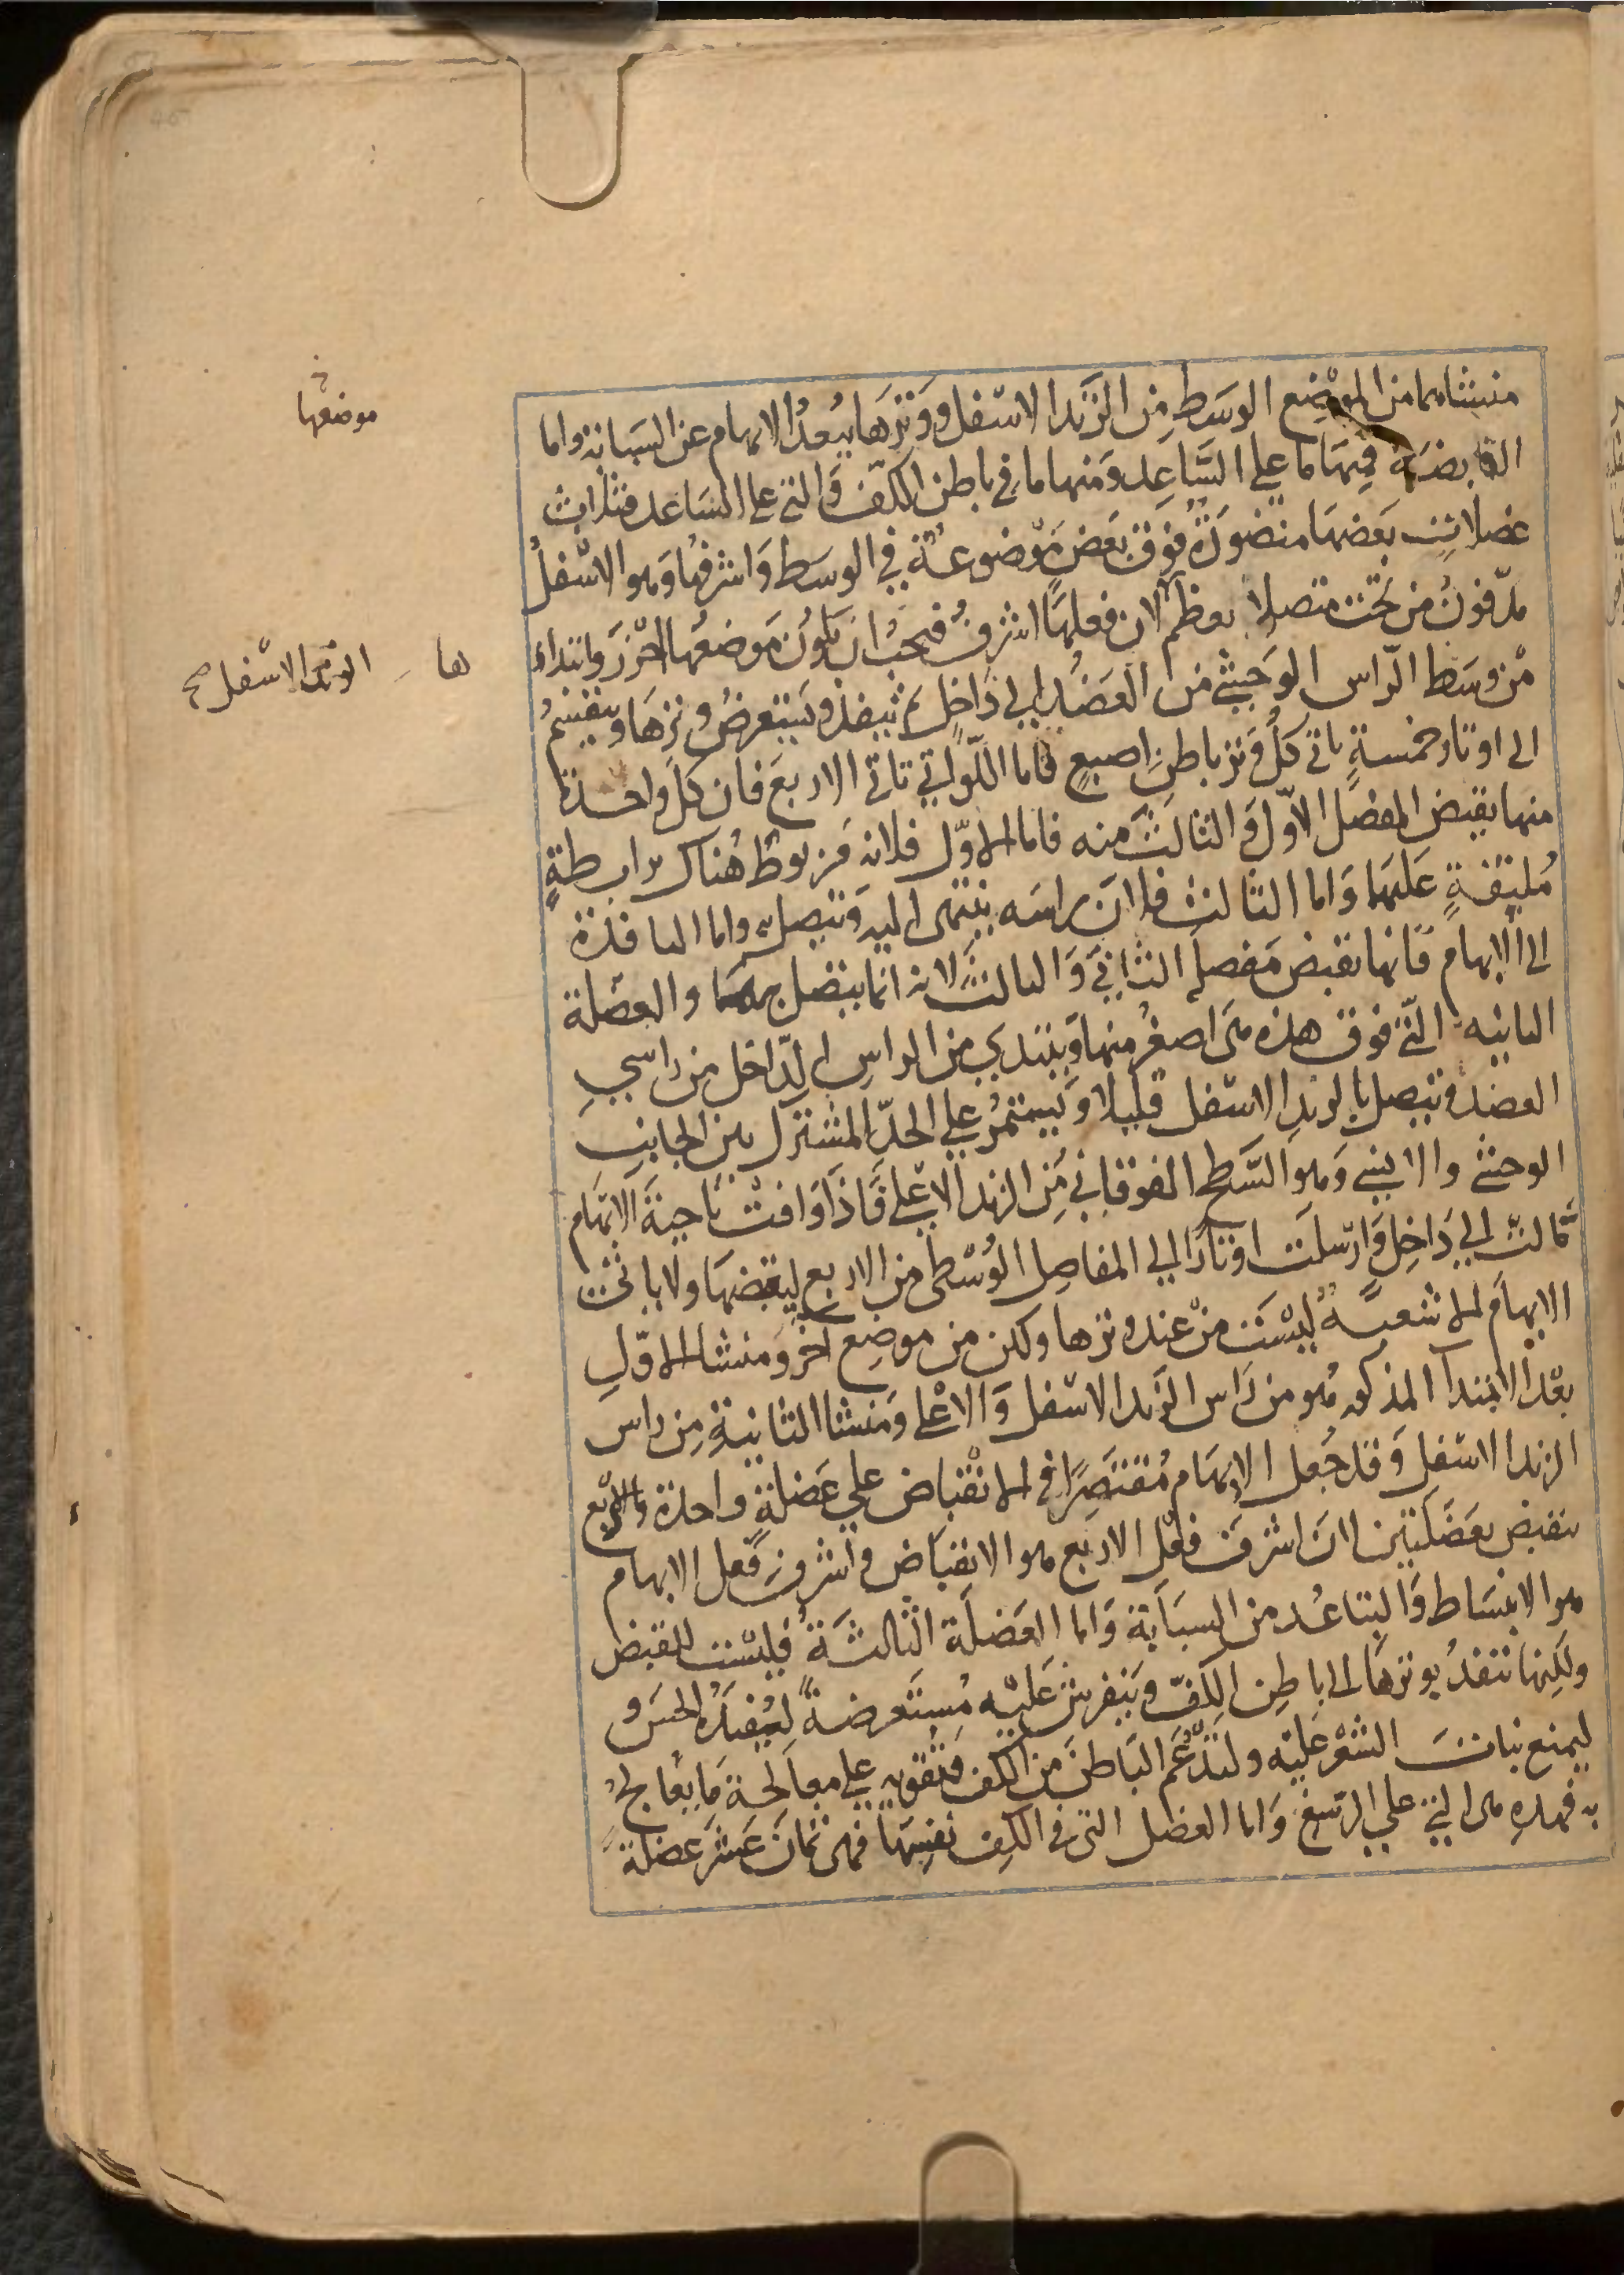 منشاهما من الموضع الوسط من الزند الاسفل ووترها يبعد الابهام عن السبابة واما
القابضة فمنها ما على الساعد ومنها ما في باطن الكف والتي على الساعد فثلاث
عضلات بعضها منضودة فوق بعض موضوعة في الوسط واشرفها وهو الاسفل
مدفون من تحت متصلا بعظم لان فعلها اشرف فيجب ان يكون موضعها احرز وابتداء
من وسط الراس الوحشي من العضد الى داخل ثم ينفذ ويستعرض وترها وينقسم
الى اوتار خمسة ياتي كل وتر باطن اصبع فاما اللواتي تاتي الاربع فان كل واحدة
منها يقبض المفصل الاول والثالث منه فاما الاول فلانه مربوط هناك برابطة
ملتفة عليهما واما الثالث فلان راسه ينتهي اليه ويتصل به واما النافذة
الى الابهام فانها تقبض مفصله الثاني والثالث لانه انما يتصل بهما والعضلة
الثانية التي فوق هذه هي اصغر منها ويبتدي من الراس الداخل من راسي
العضد ويتصل بالزند الاسفل قليلا ويستمر على الحد المشترك بين الجانب
الوحشي والانسي وهو السطح الفوقاني من الزند الاعلى فاذا وافت ناحية الابهام
مالت الى داخل وارسلت اوتارا الى المفاصل الوسطى من الاربع ليقبضها ولا ياتي
الابهام الا شعبة ليست من عند وترها ولكن من موضع اخر ومنشا الاول
بعد الابتدا المذكور هو من راس الزند الاسفل والاعلى ومنشا الثانية من راس
الزند الاسفل وقد جعل الابهام مقتصرا في الانقباض على عضلة واحدة والاربع
ينقبض بعضلتين لان اشرف فعل الاربع هو الانقباض واشرف فعل الابهام
هو الانبساط والتباعد من السبابة واما العضلة الثالثة فليست للقبض
ولكنها تنفذ بوترها الى باطن الكف وينفرش عليه مستعرضة ليفيده الحس و
ليمنع نبات الشعر عليه ولتدعم الباطن من الكف وتقويه على معالجة ما يعالج
به فهذه هي التي على الرسغ واما العضل التي في الكف نفسها فهي ثمان عشر عضلة
موضعها
ها
الوتر الاسفل صح